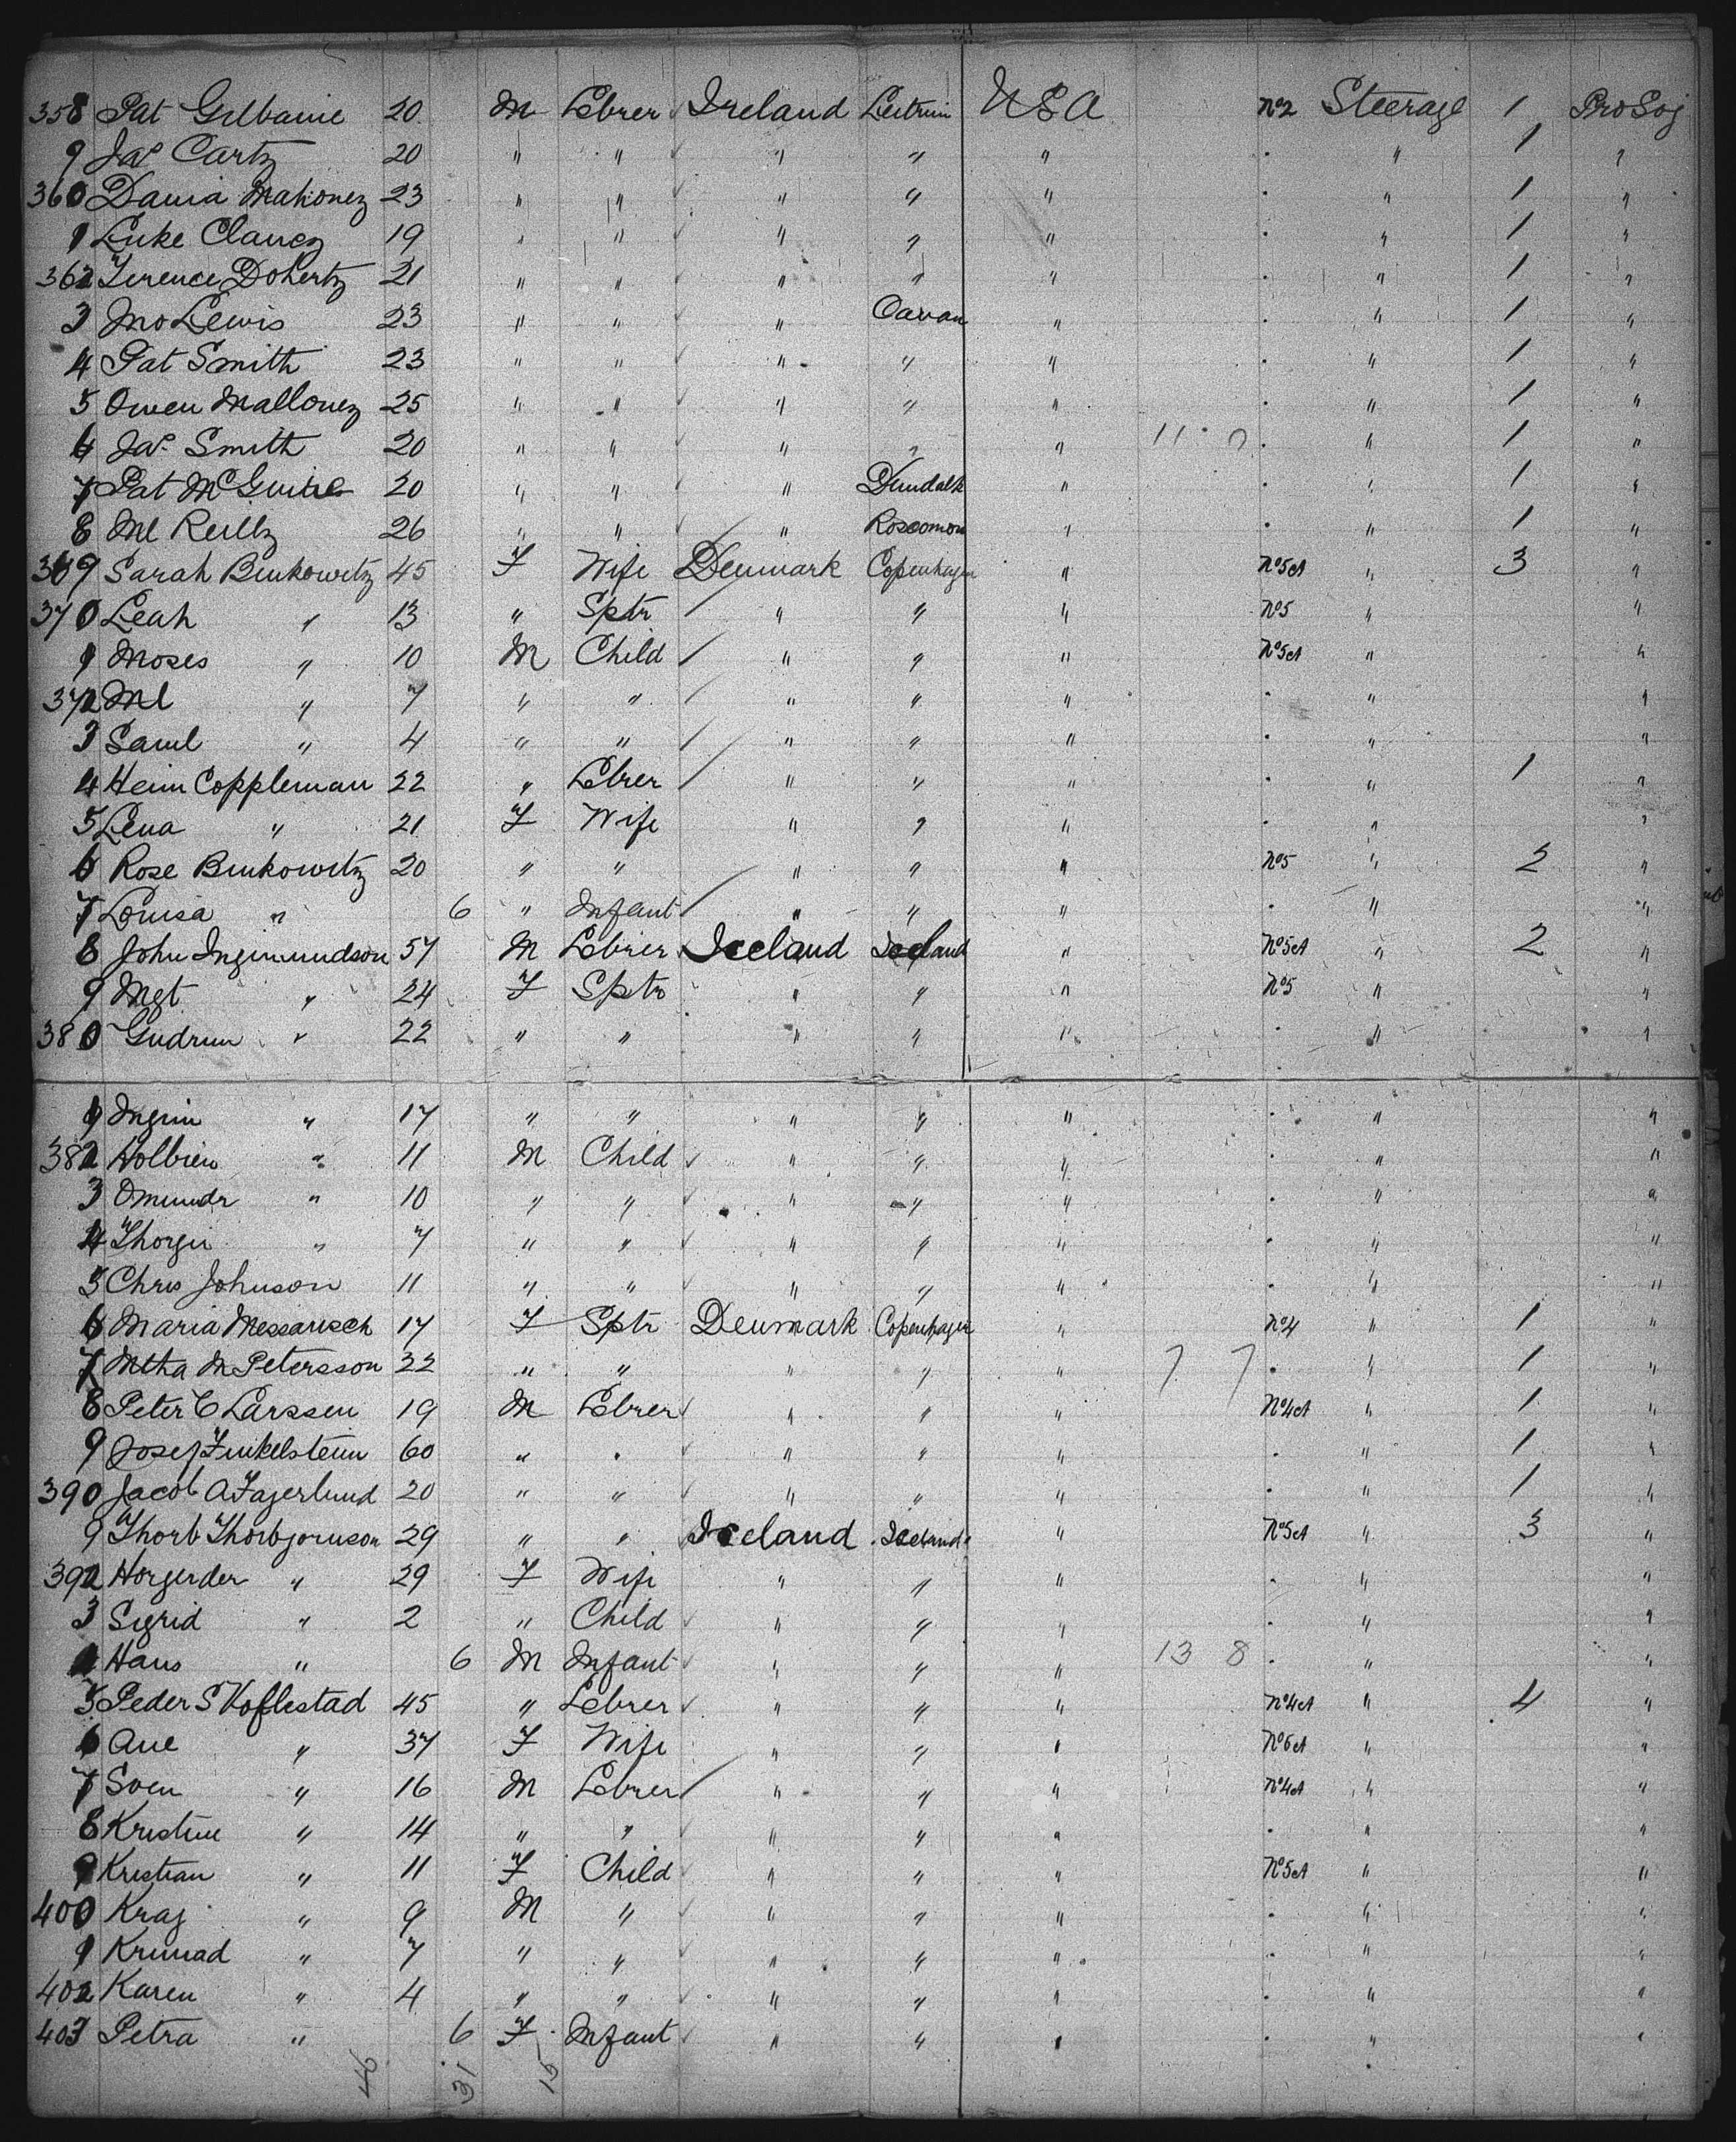 358 Pat Gilbanie 20 M Lebrer Ireland Leitrim USA No2 Steerage 1 ProSoj
9 Jas Carty 20 " " " " " . " 1 "
360 Dania Mahoney 23 " " " " " . " 1 "
1 Luke Clancy 19 " " " " " . " 1 "
362 Terence Doherty 21 " " " " " . " 1 "
3 Jno Lewis 23 " " " Cavan " . " 1 "
4 Pat Smith 23 " " " " " . " 1 "
5 Owen Malloney 25 " " " " " . " 1 "
6 Jas Smith 20 " " " " " 11 . " 1 "
7 Pat McGuire 20 " " " Dundalk " . " 1 "
8 Ml Reilly 26 " " " Roscomon " . " 1 "
369 Sarah Binkowitz 45 F Wife Denmark Copenhagen " No5A " 3 "
370 Leah " 13 " Sptr " " " No5 " "
1 Moses " 10 M Child " " " No5A " "
372 Ml " 7 " " " " " . " "
3 Saml " 4 " " " " " . " "
4 Heim Coppleman 22 " Lebrer " " " . " 1 "
5 Lena " 21 F Wife " " " . " "
6 Rose Binkowitz 20 " " " " " No5 " 2 "
7 Louisa " 6 " Infant " " " . " "
8 John Ingimundson 57 M Lebrer Iceland Iceland " No5A " 2 "
9 Mgt " 24 F Sptr " " " No5 " "
380 Gudrun " 22 " " " " " . " "
1 Ingrin " 17 " " " " " . " "
382 Holbien " 11 M Child " " " . " "
3 Omundr " 10 " " " " " . " "
4 Thorgii " 7 " " " " " . " "
5 Chris Johnson 11 " " " " " . " "
6 Maria Messarisch 17 F Sptr Denmark Copenhagen " No4 " 1 "
7 Mtha M Petersson 22 " " " " " 7 7 . " 1 "
8 Peter C Larssen 19 M Lebrer " " " No4A " 1 "
9 Josef Finkelstein 60 " " " " " . " 1 "
390 Jacob A Fagerlund 20 " " " " " . " 1 "
1 Thorb Thorbjornson 29 " " Iceland Iceland " No5A " 3 "
392 Horgerder " 29 F Wife " " " . " "
3 Sigrid " 2 " Child " " " . " "
4 Hans " 6 M Infant " " " 13 8 . " "
5 Peder S Koflestad 45 " Lebrer " " " No4A " 4 "
6 Ane " 37 F Wife " " " No6A " "
7 Sven " 16 M Lebrer " " " No4A " "
8 Kristine " 14 " " " " " . " "
9 Kristian " 11 F Child " " " No5A " "
400 Krag " 9 M " " " " . " "
1 Krunad " 7 " " " " " . " "
402 Karen " 4 " " " " " . " "
403 Petra " 6 F Infant " " " . " "
46 31 15